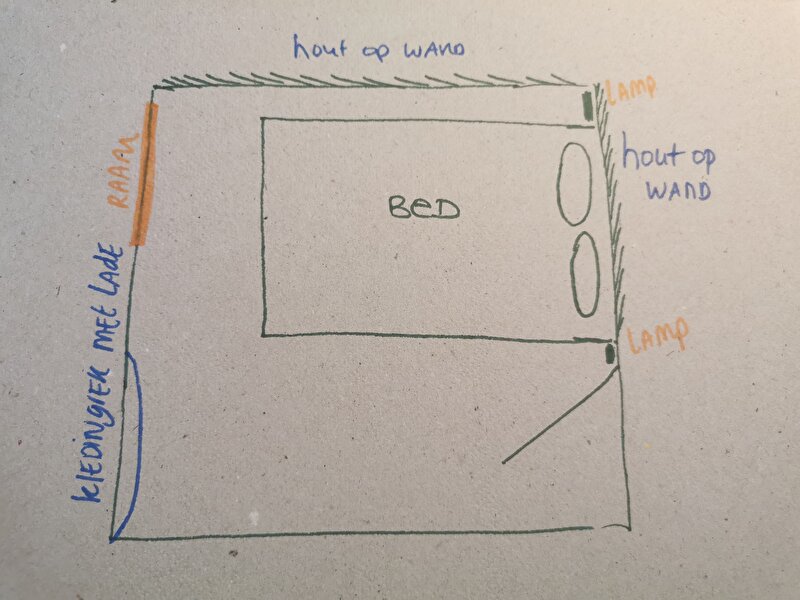 hout op WAND
LAMP
hout op
WAND
RAAM
BED
LAMP
KLEDINGREK MET LADE